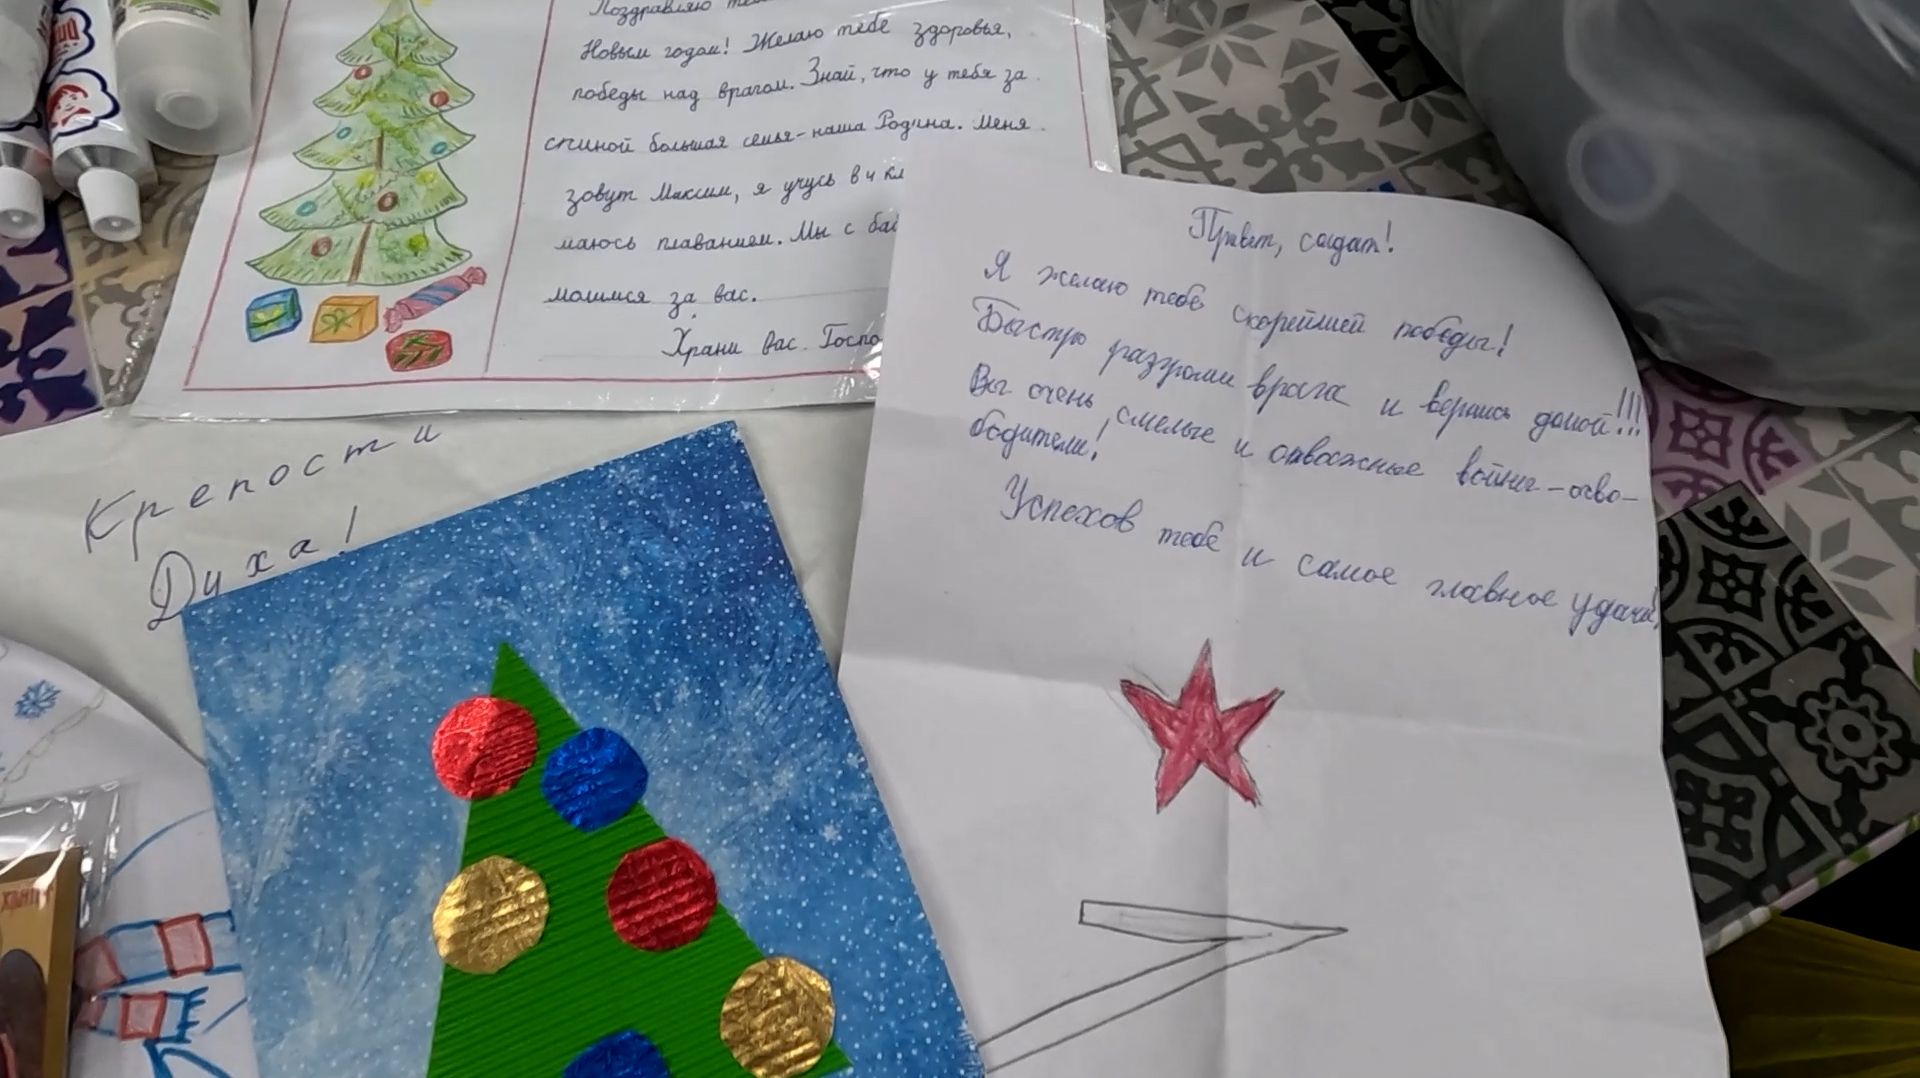 Поздравляю
Новым годом! Желаю тебе здоровья,
победы над врагом. Знай, что у тебя за
спиной большая семья-наша Родина. Меня
зовут Максим, я учусь в 4 кл
маюсь плаванием. Мы с
молимся за вас.
Храни вас Госпо
Крепости
Духа!
Привет, солдат!
Я желаю тебе скорейшей победы!
Быстро разгроми врага и вернись домой!!!
Вы очень смелые и отважные войны-осво-
бодители!
Успехов тебе и самое главное удачи!